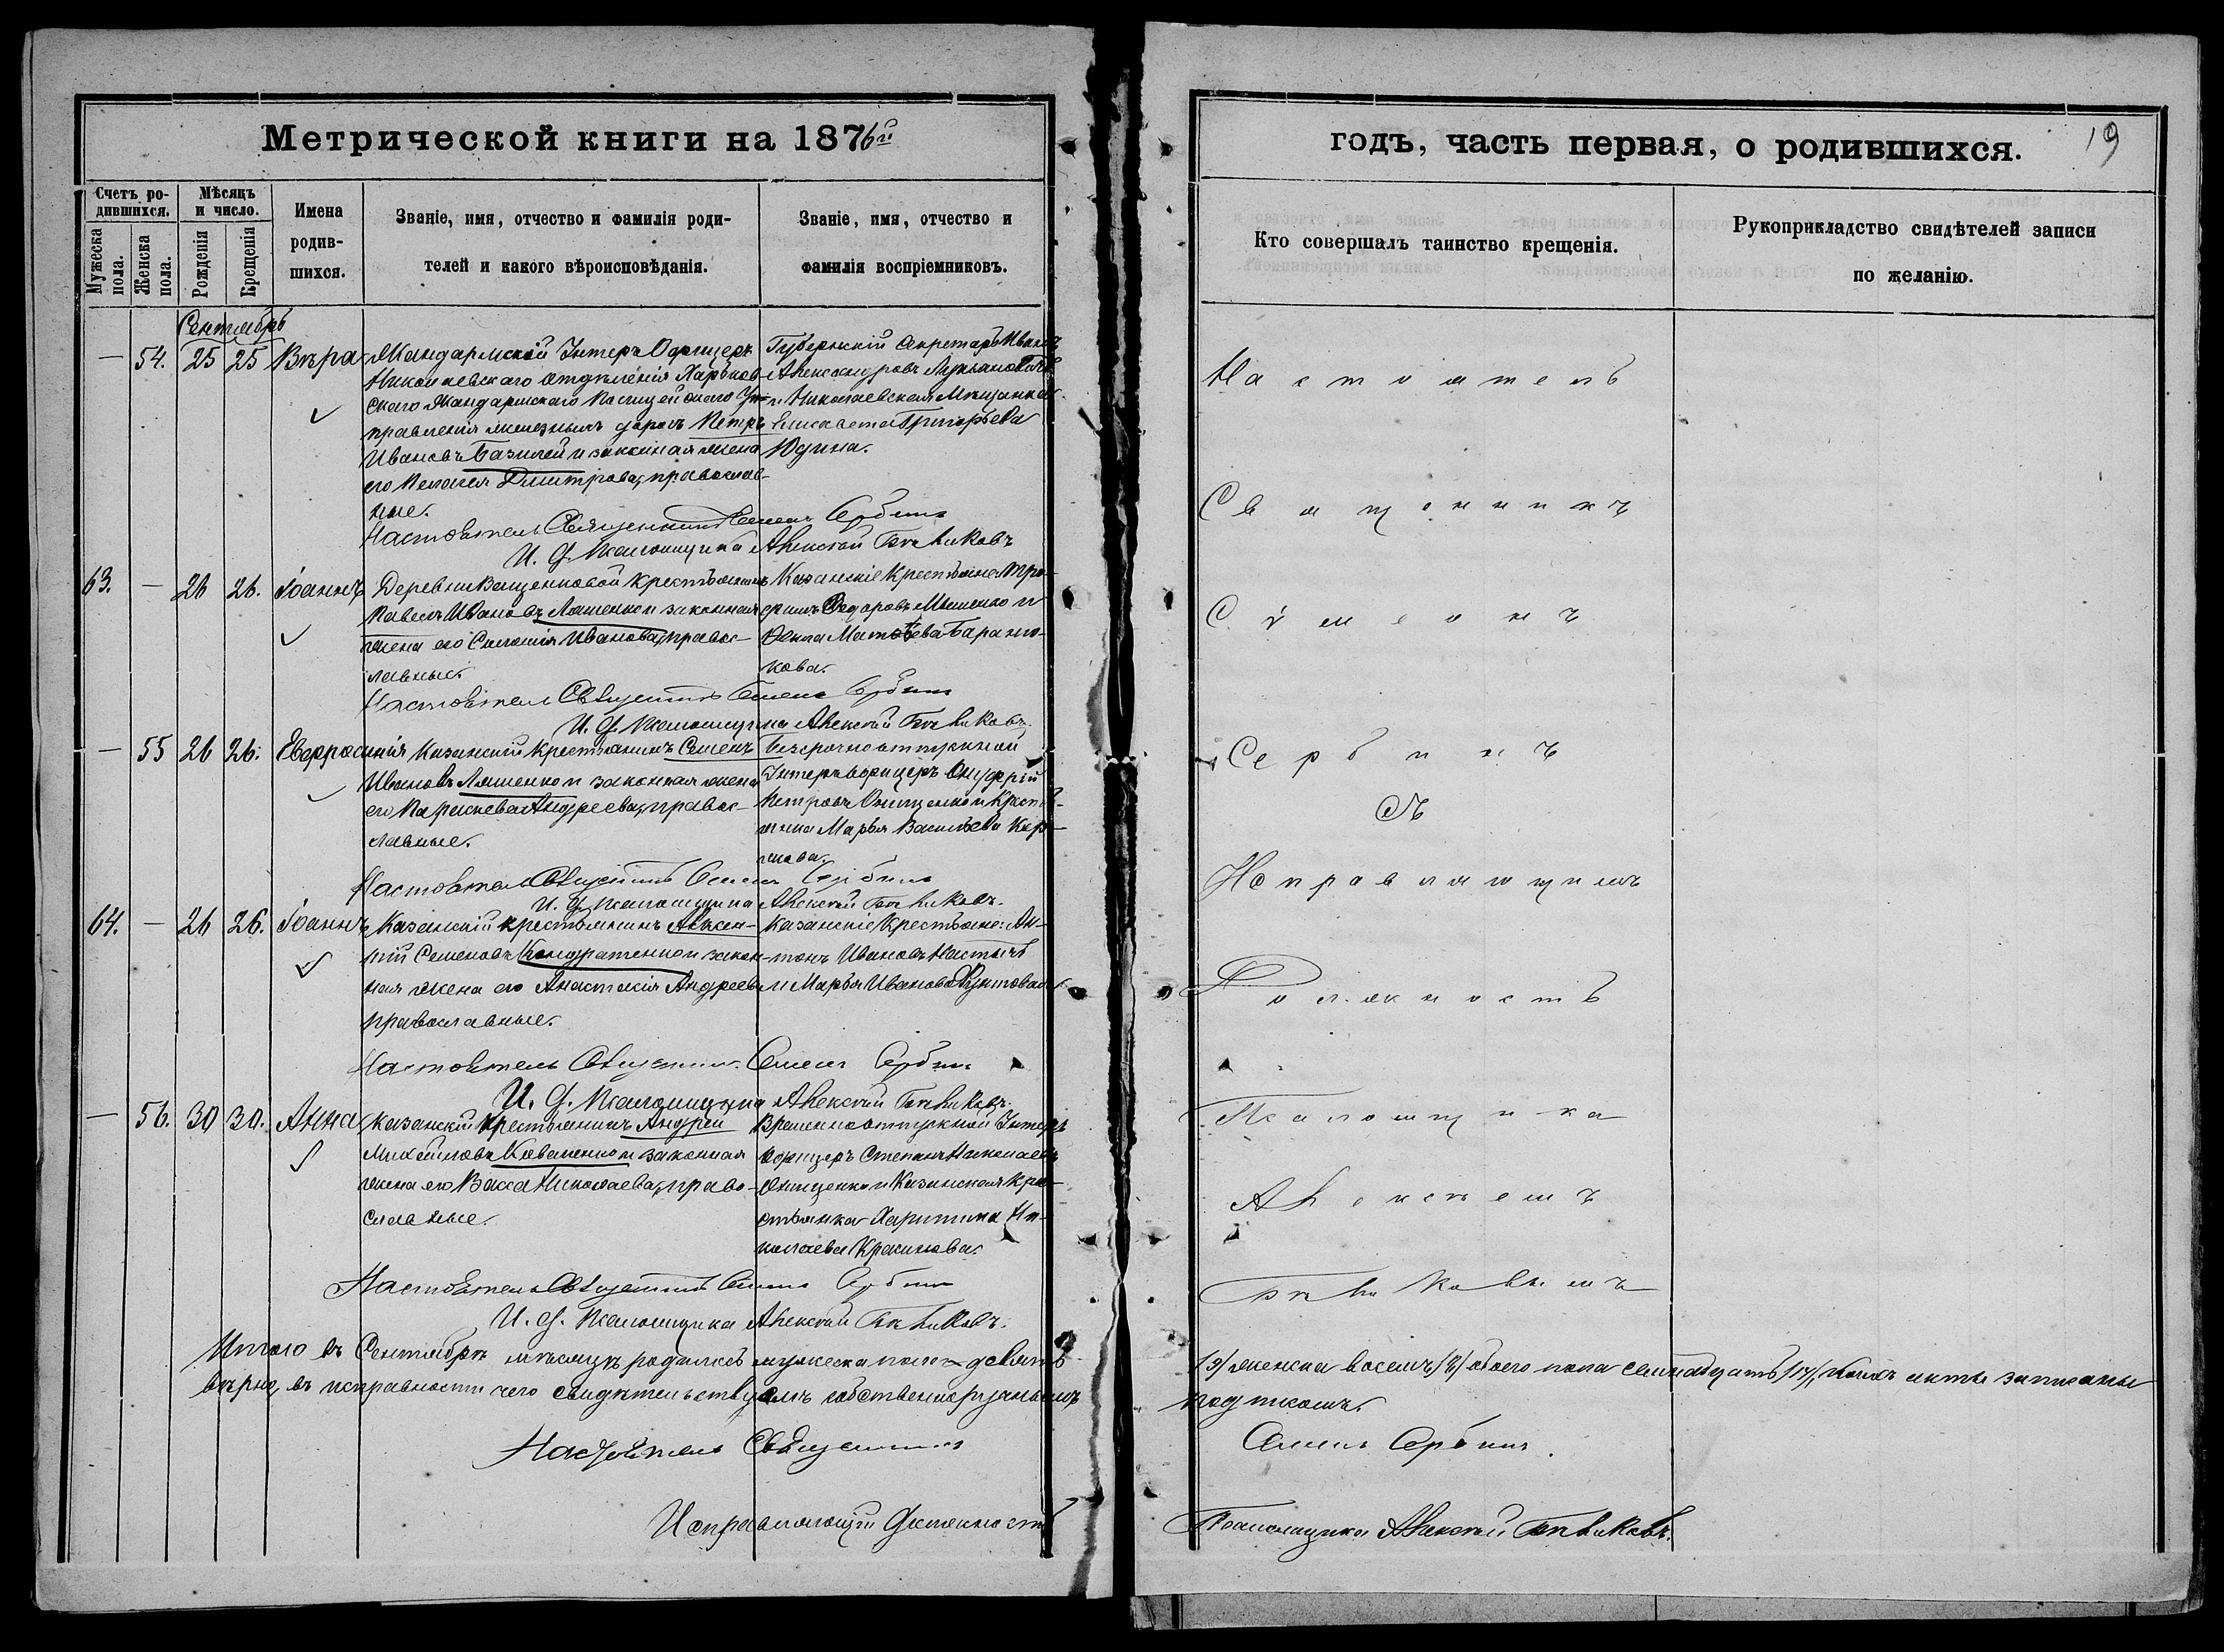 Метрической книги на 1876й
годъ, часть первая, о родившихся.
19
Счетъ ро-
дившихся.
Мужеска пола.
Женска пола.
Мѣсяцъ
и число.
Рожденія
Крещенія
Имена
родив-
шихся.
Званіе, имя, отчество и фамилія роди-
телей и какого вѣроисповѣданія.
Званіе, имя, отчество и
фамилія воспріемниковъ.
Кто совершалъ таинство крещенія.
Рукоприкладство свидѣтелей записи
по желанію.
Сентябрь
— 54. 25 25 Вѣра
Жандармской Унтеръ Офицеръ
Николаевскаго отдѣленія Харьков-
скаго Жандармскаго Полицейскаго Уп-
равленія желѣзныхъ дорогъ Петръ
Ивановъ Базилей и законная жена
его Пелагея Дмитрова, православ-
ные.
Губернскій Секретарь Иванъ
Александровъ Лукьяновичъ
и Николаевская Мѣщанка
Елисавета Григорьева
Юдина.
Настоятель Священникъ Симеонъ Сербинъ
И. д. Псаломщика Алексѣй Бѣликовъ
63. — 26 26. Іоаннъ
Деревни Ващенковой крестьянинъ
Павелъ Ивановъ Ляшенко и законная
жена его Ивановва, правос-
лавные.
Казанскіе Крестьяне: Тро-
фимъ Федоровъ и
Матвѣева Баранни-
кова.
Настоятель Священникъ Симеонъ Сербинъ
И. д. Псаломщика Алексѣй Бѣликовъ.
— 55 26 26. Евфросинія
Казанскій крестьянинъ Семенъ
Ивановъ Ляшенко и законная жена
его Параскева Андреева, правос-
лавные.
Безсрочноотпускной
Унтеръ Офицеръ Онуфрій
Петровъ Онищенко и Кресть-
янка Марья Васильева
Настоятель Священникъ Симеонъ Сербинъ
И. д. Псаломщика Алексѣй Бѣликовъ.
64. — 26 26. Іоаннъ
Казанскій крестьянинъ Авксен-
тій Семеновъ Кондратенко и закон-
ная жена его Анастасія Андреева
православные.
Казанскіе Крестьяне: Ан-
тонъ Ивановъ
и Марья Иванова
Настоятель Священникъ Симеонъ Сербинъ
И. д. Псаломщика Алексѣй Бѣликовъ.
— 56. 30 30. Анна
Казанскій Крестьянинъ Андрей
Михайловъ Коваленко и законная
жена его Васса Николаева, право-
славные.
Временноотпускной Унтеръ
Офицеръ Степанъ Николаевъ
Онищенко и Казанская Кре-
стьянка Харитина Ни-
колаева
Настоятель Священникъ Симеонъ Сербинъ
И. д. Псаломщика Алексѣй Бѣликовъ.
Настоятель
Священникъ
Сѵмеонъ
Сербинъ
Съ
Исправляющимъ
Должность
Псаломщика
Алексѣемъ
Бѣликовымъ
Итого въ Сентябрѣ мѣсяцѣ родилось мужеска пола девять /9/ женска восемь /8/ обоего пола семнадцать /17/, коихъ акты записаны
вѣрно, въ исправности чего свидѣтельствуемъ собственноручнымъ подписомъ.
Настоятель Священникъ Симеонъ Сербинъ.
Исправляющій должность Псаломщика Алексѣй Бѣликовъ.